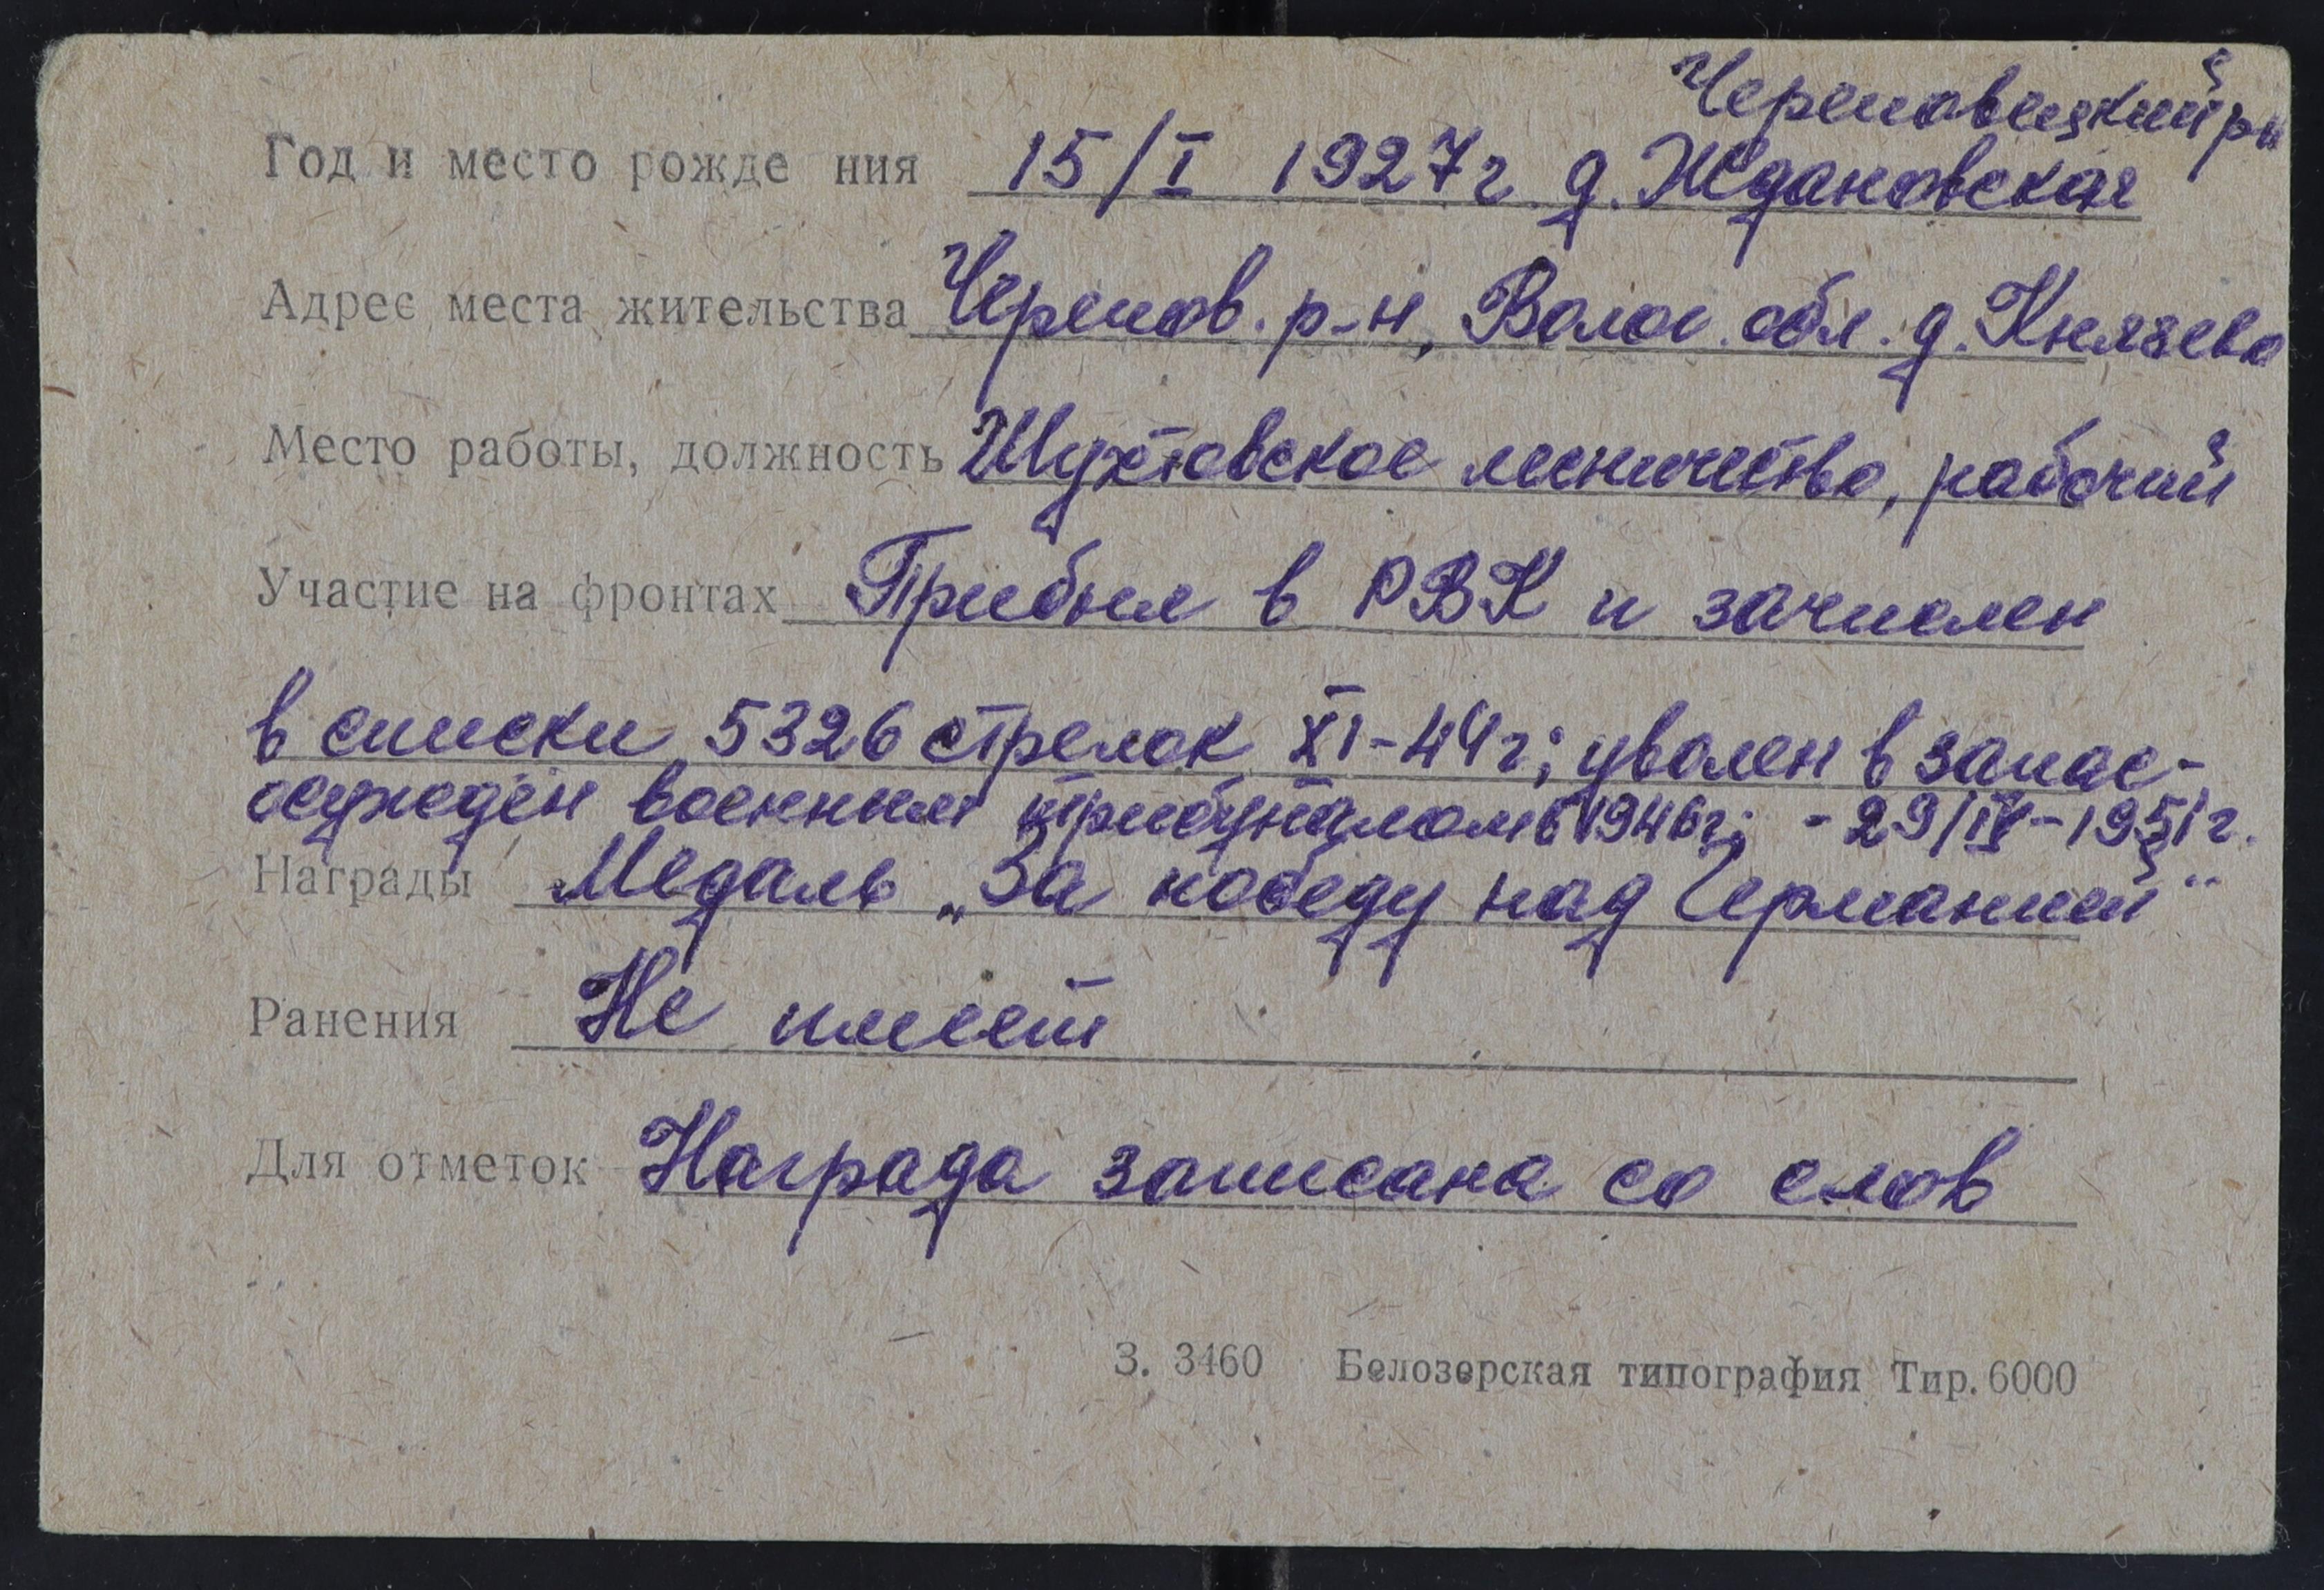 Череповецкий рн
Год и место рожде ния 15/I 1927г д. Ждановская
Адрес места жительства Черепов. р-н, Волог. обл. д. Князево
Место работы, должность Шухтовское лесничество, рабочий
Участие на фронтах Прибыл в РВК и зачислен
в списки 5326 стрелок XI-44г; уволен в запас-
осужден военным трибуналом в 1946г; - 29/IV-1951г.
Награды Медаль „За победу над Германией"
Ранения Не имеет
Для отметок Награда записана со слов
З. 3460 Белозерская типография Тир. 6000